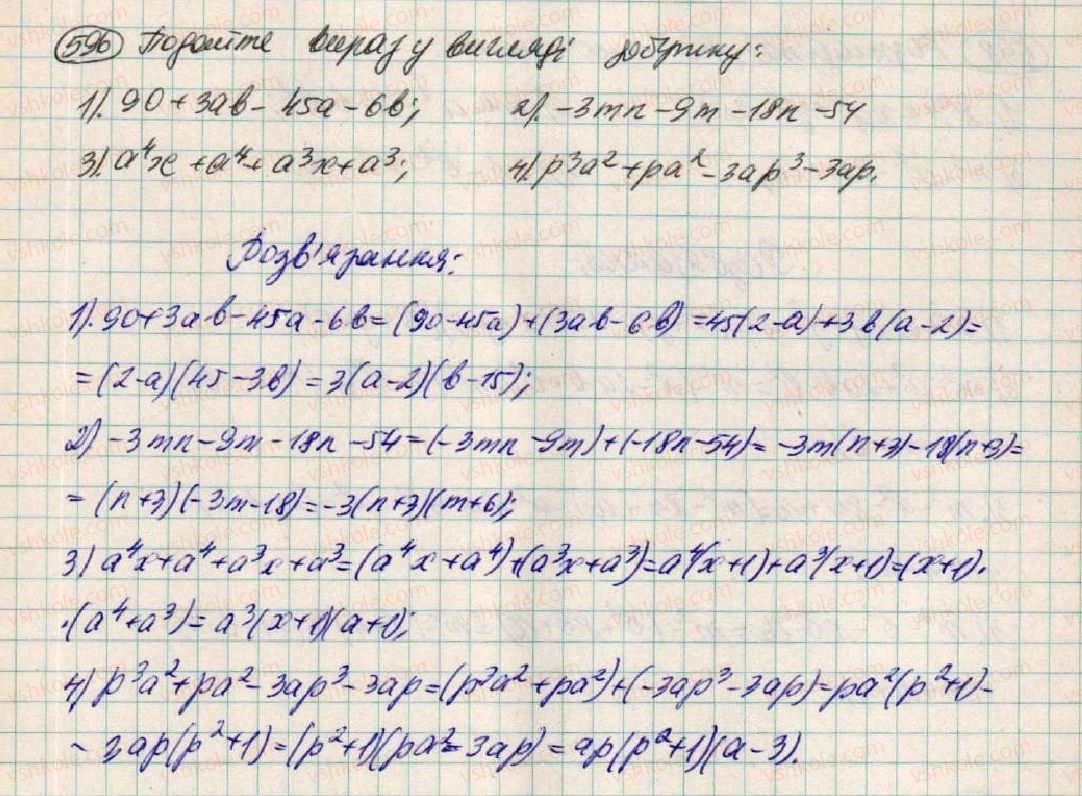 596 Подайте вираз у вигляді добутку:
1). 90+3ав-45а-6в; 2). -3mn-9m-18n-54
3). a⁴x+a⁴+a³x+a³; 4). p³a²+pa²-3ap³-3ap.
Розв'язання:
1). 90+3ав-45а-6в=(90-45а)+(3ав-6в)=45(2-а)+3в(а-2)=
=(2-а)(45-3в)=3(а-2)(в-15);
2) -3mn-9m-18n-54=(-3mn-9m)+(-18n-54)=-3m(n+3)-18(n+3)=
=(n+3)(-3m-18)=-3(n+3)(m+6);
3) a⁴x+a⁴+a³x+a³=(a⁴x+a⁴)+(a³x+a³)=a⁴(x+1)+a³(x+1)=(x+1)·
·(a⁴+a³)=a³(x+1)(a+1);
4) p³a²+pa²-3ap³-3ap=(p³a²+pa²)+(-3ap³-3ap)=pa²(p²+1)-
-3ap(p²+1)=(p²+1)(pa²-3ap)=ap(p²+1)(a-3).
vshkole.com